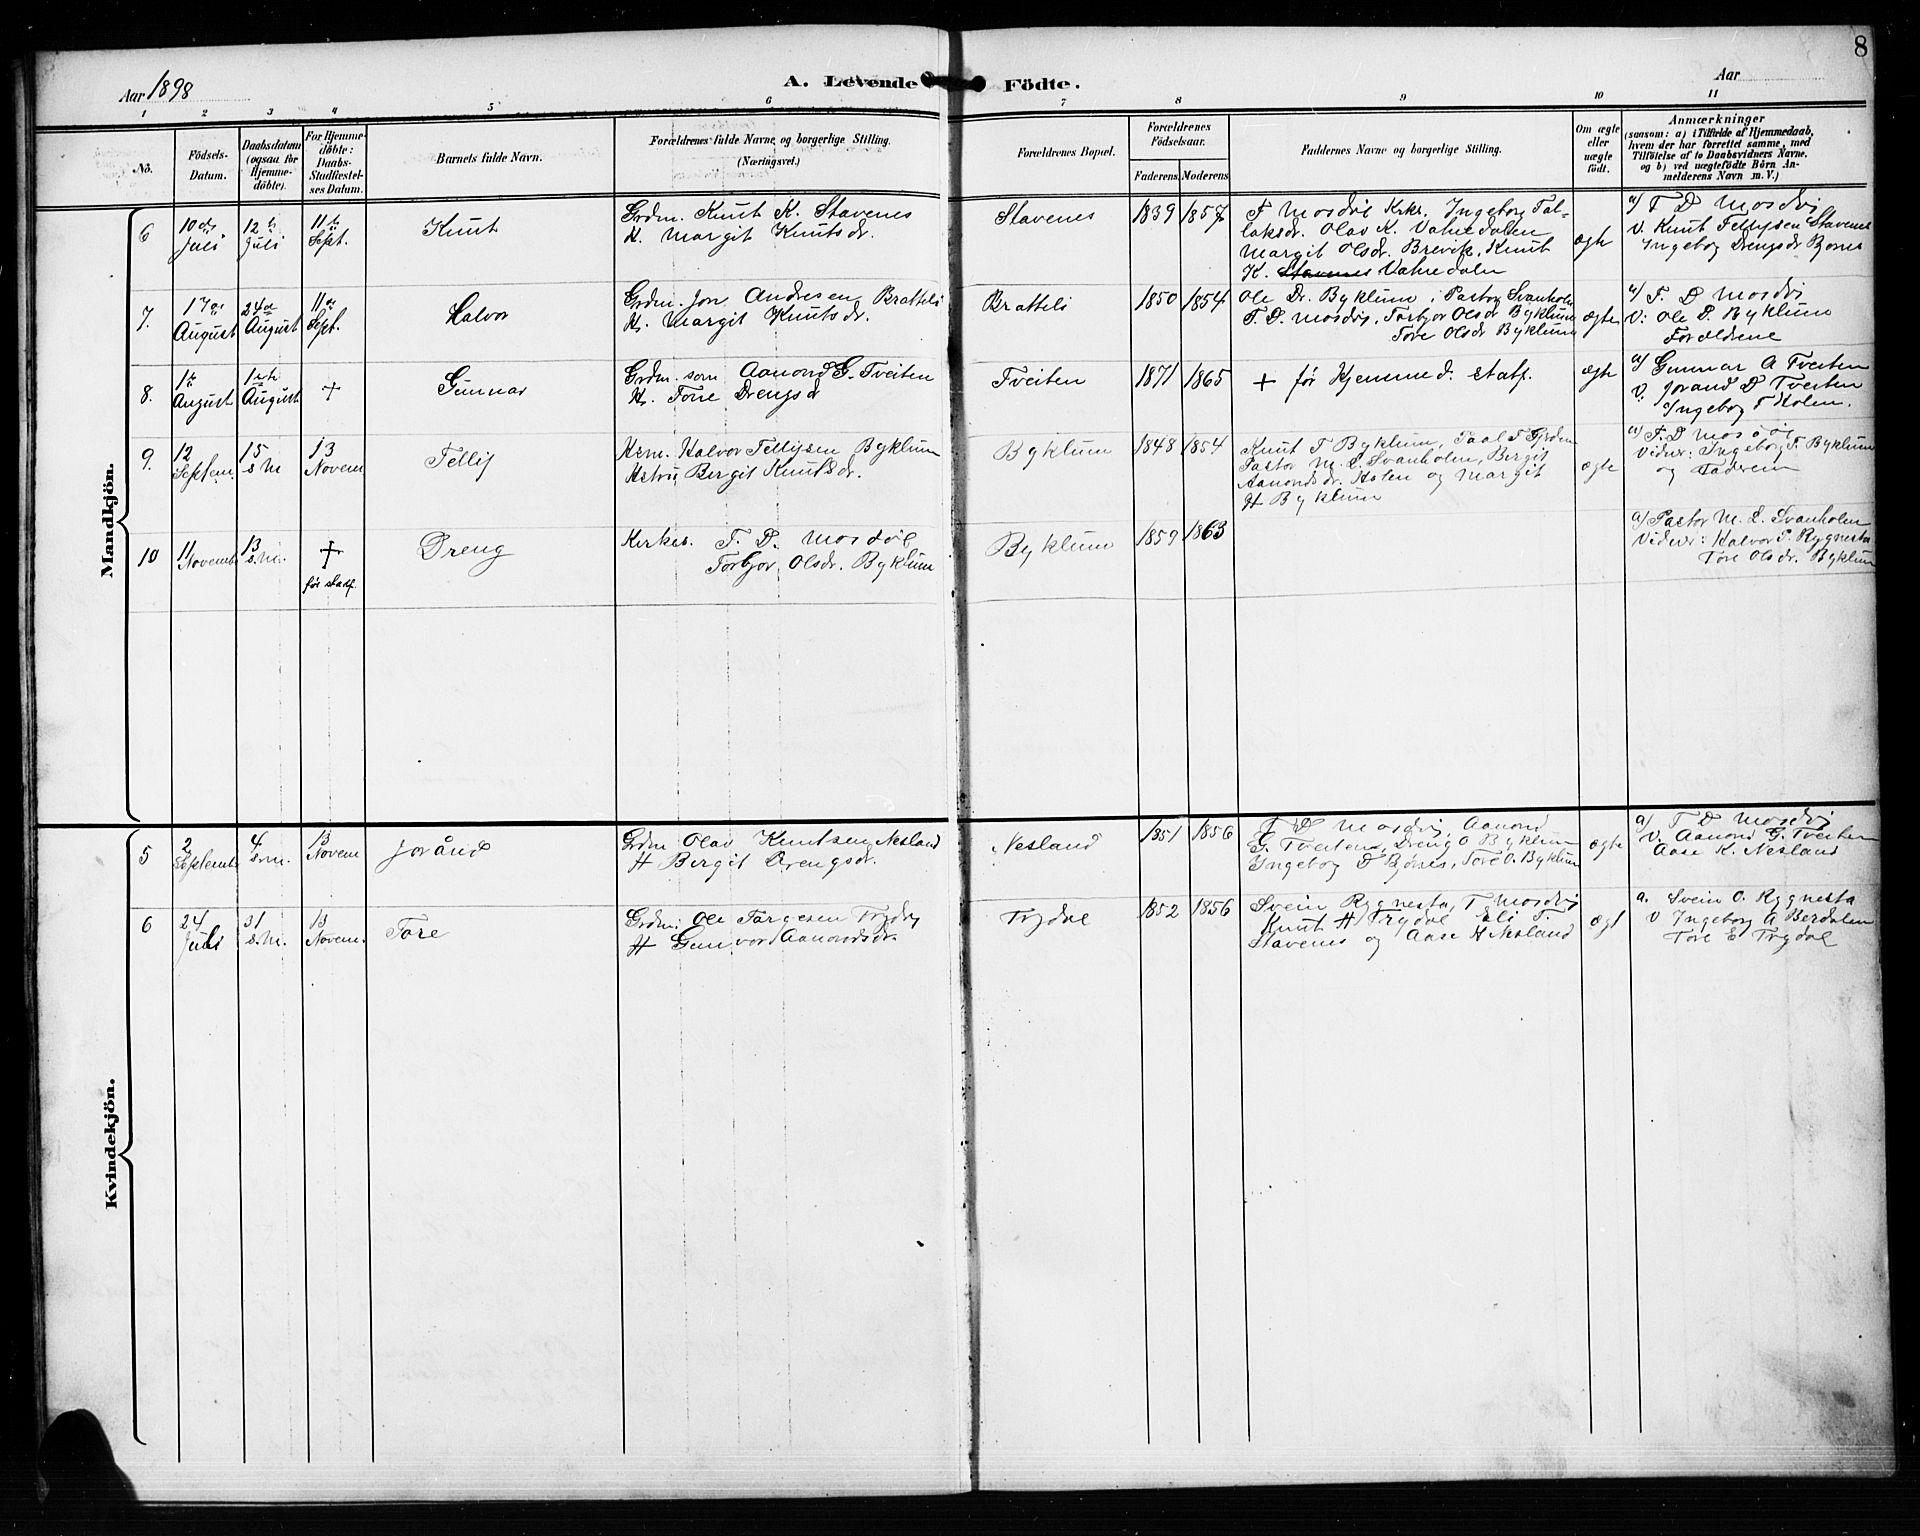 8
Aar 1898
A. Levende Födte.
Aar
1 2 3 4 5 6 7 8 9 10 11
No.
Födsels-
Datum.
Daabsdatum
(ogsaa for
Hjemme-
döbte).
For Hjemme-
döbte:
Daabs-
Stadfæstel-
ses Datum.
Barnets fulde Navn.
Forældrenes fulde Navne og borgerlige Stilling.
(Næringsvei.)
Forældrenes Bopæl.
Forældrenes
Födselsaar.
Faderens. Moderens.
Faddernes Navne og borgerlige Stilling.
Om ægte
eller
uægte
födt.
Anmærkninger
(saasom: a) i Tilfælde af Hjemmedaab,
hvem der har forrettet samme, med
Tilföielse af to Daabsvidners Navne,
og b) ved uægtefödte Börn An-
melderens Navn m. V.)
Mandkjön.
6
10de
Juli
12te
Juli
11te
Sept.
Knut
Grdm. Knut K. Stavenes
H. Margit Knutsdr.
Stavenes
1839 1857
T Mosdöl Krks. Ingeborg Tal-
laksdr. Olav K. Vatnedalen
Margit Olsdr. Brevik, Knut
K. Stavenes Vatnedalen
ægte
a/ T D Mosdöl
V. Knut Fellejsen Stavenes
Ingeborg Drengsdr Bjønes
7.
17de
August
24de
August
11te
Sept.
Halvor
Grdm. Jon Andresen Bratteli
H. Margit Knutsdr.
Bratteli
1850 1854
Ole Dr. Byklum, Pastor Svanholm
T. D. Mosdøl, Torbjor Olsdr Byklum
Tore Olsdr Byklum
ægte
a/ T. D Mosdöl
V: Ole D. Byklum
Forældrene
8.
1te
August
1ste
August
+
Gunnar
Grdm. søn Aanond G. Tveiten
H. Torre Drengsd
Tveiten
1871 1865
+ før Hjemmed. statf.
ægte
a/ Gunnar A Tveiten
V. Jorand D Tveiten
Ingeborg T Holen.
9.
12
Septem.
15
s. M
13
Novem
Tellif
Hsm. Halvor Tellefsen Byklum
Hstru Bergit Knutsdr.
Byklum
1848 1854
Knut T Byklum, Paal T Gjerden
Pastor M. L. Svanholm, Bergit
Aanondsdr. Holen og Margit
H Byklum
ægte
a/ T. D Mosdöl
Vidner: Ingeborg T. Byklum
og Faderen
10
11
Novemb
13
s. M.
+
før stadf.
Dreng
Kirkes. T. D. Mosdöl
Torbjor Olsdr. Byklum
Byklum
1859 1863
a/ Pastor M. L. Svanholm
Vidner: Halvor P. Rygnestad
Tore Olsdr. Byklum
Kvindekjön.
5
2
Septemb
4
s. m.
13
Novem
Joránd
Grdm Olav Knutsen Nesland
H Bergit Drengsdr.
Nesland
1851 1856
T D Mosdöl, Aanond
G. Tveiten, Dreng O Byklum
Ingeborg D Bjønes, Tore O. Byklum
ægte
a) T D Mosdöl
V. Aanond G. Tveiten
Aase K. Nesland
6
24
Juli
31
s. M.
13
Novem.
Tore
Grdm: Ole Targesen Trydal
H Gunvor Aanondsdr.
Trydal
1852 1856
Svein Rygnesta, T Mosdöl
Knut H Trydal Eli T.
Stavenes og Aase H Nesland
ægt
a. Svein O. Rygnesta
V Ingeborg A Berdalen
Tore E Trydal